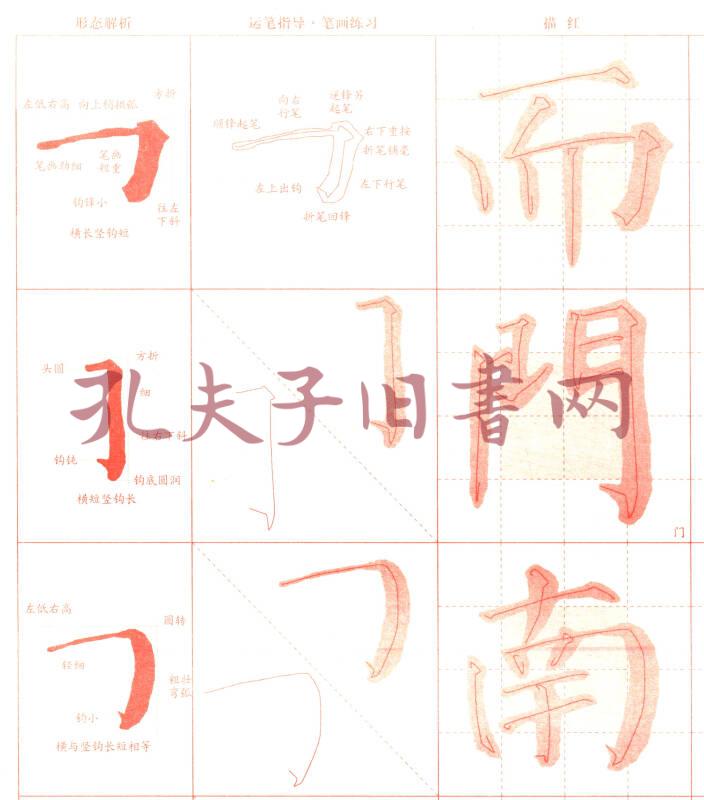 形态解析
运笔指导·笔画练习
描红
左低右高 向上稍拱弧
方折
笔画劲细
笔画粗重
钩锋小
往左下斜
横长竖钩短
顺锋起笔
向右行笔
逆锋另起笔
右下重按
折笔铺毫
左上出钩
左下行笔
折笔回锋
而
头圆
方折
细
往右下斜
钩钝
钩底圆润
横短竖钩长
門
门
孔夫子旧书网
左低右高
圆转
轻细
粗壮弯弧
钩小
横与竖钩长短相等
南